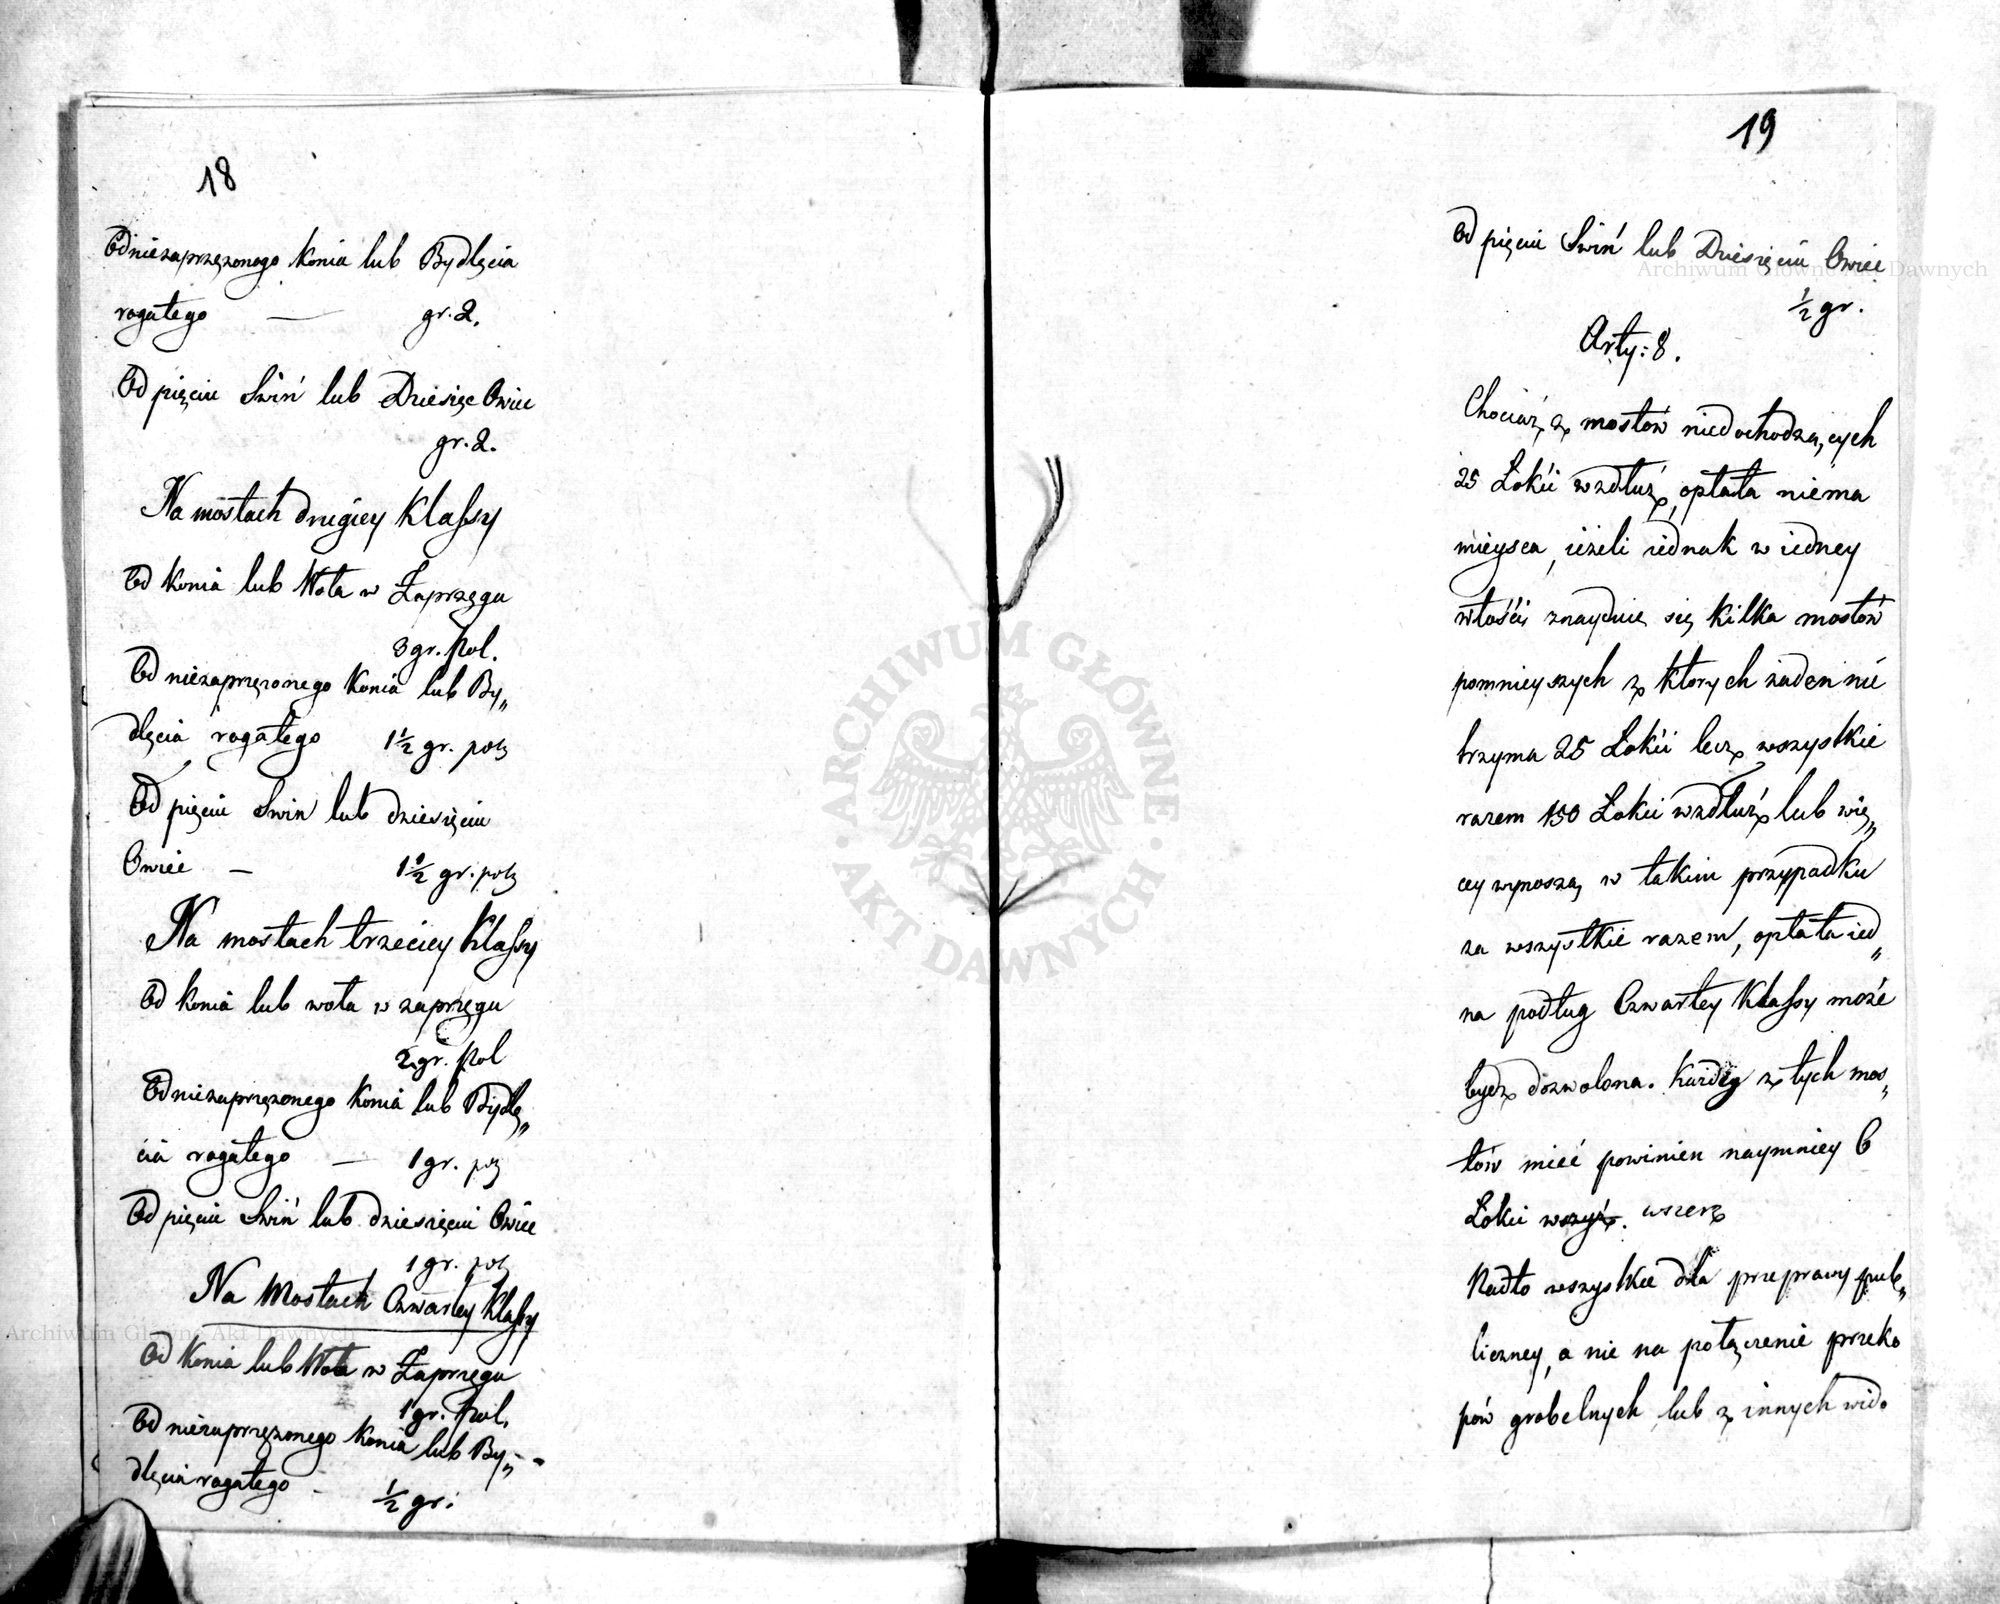 18
Od niezaprzęzonego Konia lub Bydlęcia
rogatego — gr. 2.
Od pięciu Swiń lub Dziesięc Owiec
gr. 2.
Na mostach drugiey Klassy
Od Konia lub Wołа w Zaprzęgu
3 gr. Pol.
Od niezaprzęzonego Konia lub By„
dlęcia rogatego 1½ gr. pol
Od pięciu Swin lub dziesięciu
Owiec — 1½ gr. pol
Na mostach trzeciey Klassy
Od konia lub woła w zaprzęgu
2 gr. Pol
Od niezaprzęzonego Konia lub Bydlę„
cia rogatego — 1 gr. pol
Od pięciu Swiń lub dziesięciu Owiec
1 gr. pol
Na Mostach Czwartey Klassy
Od Konia lub Woła w Zaprzęgu
1 gr. Pol.
Od niezaprzęzonego Konia lub By„
dlęcia rogatego - ½ gr:
19
Od pięciu Swiń lub Dziesięciu Owiec
½ gr.
Arty: 8.
Chociaż z mostów niedochodzących
25 Łokci wzdłuż, opłata niema
mieysca, ieżeli iednak w iedney
włości znayduie się kilka mostów
pomnieyszych z ktorych żaden nie
trzyma 25 Łokci lecz wszystkie
razem 150 Łokci wzdłuż lub wię„
cey wynoszą, w takim przypadku
za wszystkie razem, opłata ied„
na podług Czwartey Klassy może
bydz dozwolona. Każdy z tych mos„
tów mieć powinien naymniey 6
Łokci wszyż. wszerz
Nadto wszystkie dla przeprawy pub„
liczney, a nie na połączenie przeko
pów grobelnych lub z innych wido
ARCHIWUM GŁÓWNE AKT DAWNYCH
Archiwum Główne Akt Dawnych
Archiwum Główne Akt Dawnych